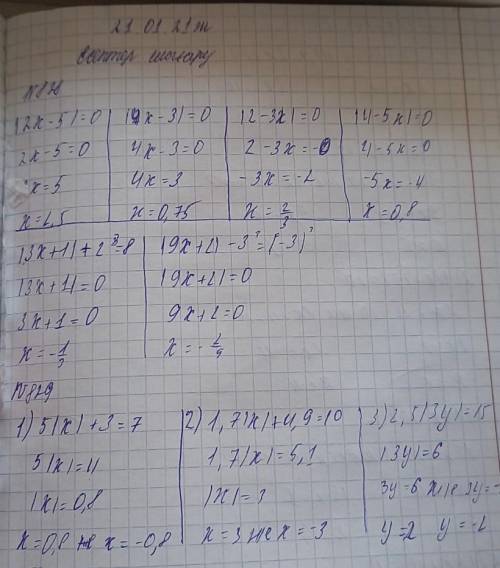 21 01 21ж
есептер шығару
N828
|2x-5|=0 |4x-3|=0 |2-3x|=0 |4-5x|=0
2x-5=0 4x-3=0 2-3x=0 4-5x=0
x=5 4x=3 -3x=-2 -5x=-4
x=2,5 x=0,75 x=2/3 x=0,8
|3x+1|+2³=8 |9x+2|-3³=(-3)³
|3x+1|=0 |9x+2|=0
3x+1=0 9x+2=0
x=-1/3 x=-2/9
N829
1) 5|x|+3=7 2) 1,7|x|+4,9=10 3) 2,5|3y|=15
5|x|=4 1,7|x|=5,1 |3y|=6
|x|=0,8 |x|=3 3y=6 және 3y=-
x=0,8 және x=-0,8 x=3 және x=-3 y=2 y=-2